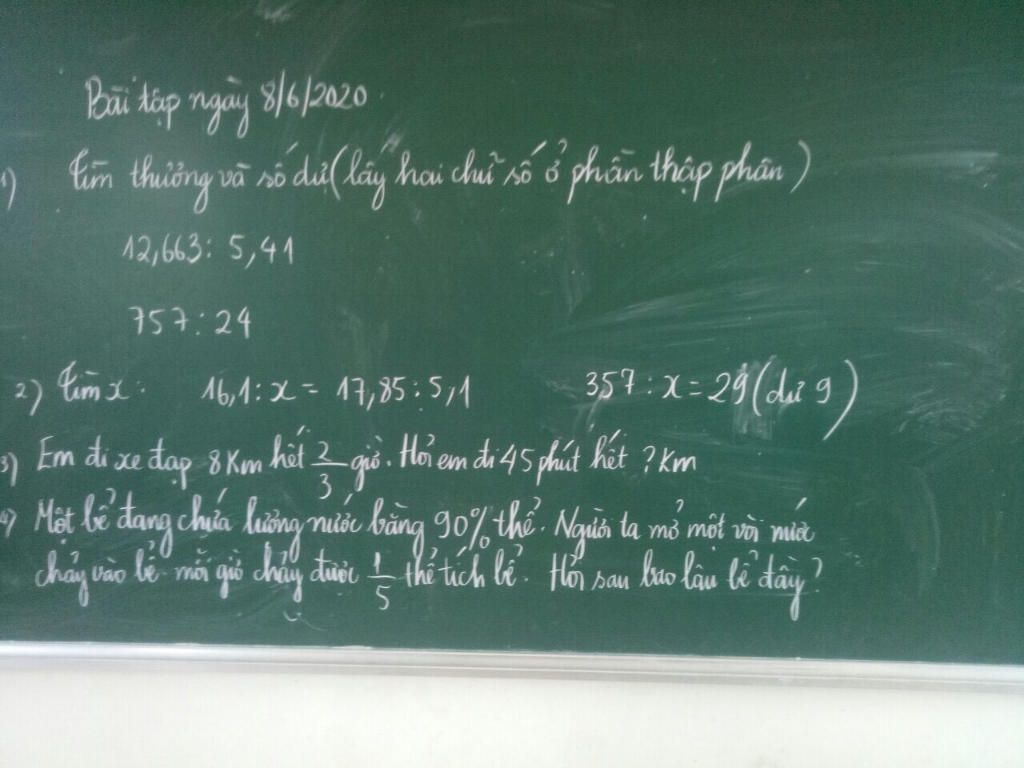 Bài tập ngày 8/6/2020
1) Tìm thương và số dư (lấy hai chữ số ở phần thập phân)
12,663 : 5,41
757 : 24
2) Tìm x : 16,1 : x = 17,85 : 5,1 357 : x = 29 (dư 9)
3) Em đi xe đạp 8 Km hết 2/3 giờ. Hỏi em đi 45 phút hết ? Km
4) Một bể đang chứa lượng nước bằng 90% thể. Người ta mở một vòi nước
chảy vào bể. mỗi giờ chảy được 1/5 thể tích bể. Hỏi sau bao lâu bể đầy?